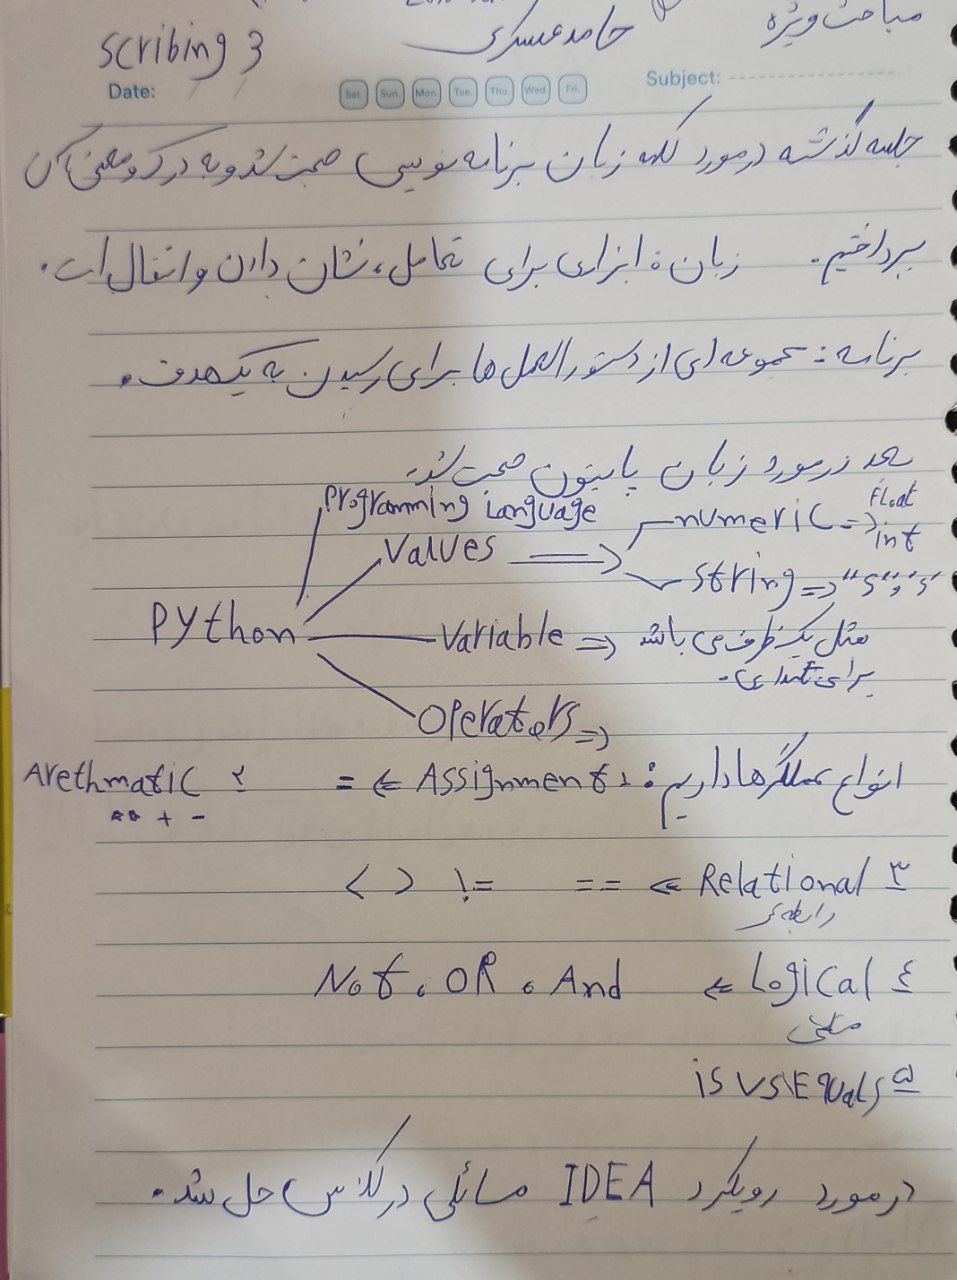 مباحث ویژه
حامد عسکری
scribing 3
Subject:
Sat. Sun. Mon. Tue. Thu. Wed. Fri.
Date:
جلسه گذشته درمورد کلمه زبان برنامه نویسی صحبت شد و به درک و معنی آن
پرداختیم. زبان: ابزاری برای تعامل، نشان دادن و انتقال است.
برنامه: مجموعه ای از دستورالعمل ها برای رسیدن به یک هدف.
بعد درمورد زبان پایتون صحبت شد.
Programming Language
Values ⇒ numeric ⇒ Float int
string ⇒ "s", 's'
Python
Variable ⇒ مثل یک ظرف می باشد
برای نگهداری.
Operators ⇒
انواع عملگرها داریم: ۱ Assignment ⇐ = ۲ Arethmatic
** + -
۳ Relational ⇐ == != < >
رابطه ای
٤ Logical ⇐ And ، OR ، Not
منطقی
۵ is vs Equals
درمورد رویکرد IDEA مسائلی در کلاس حل شد.